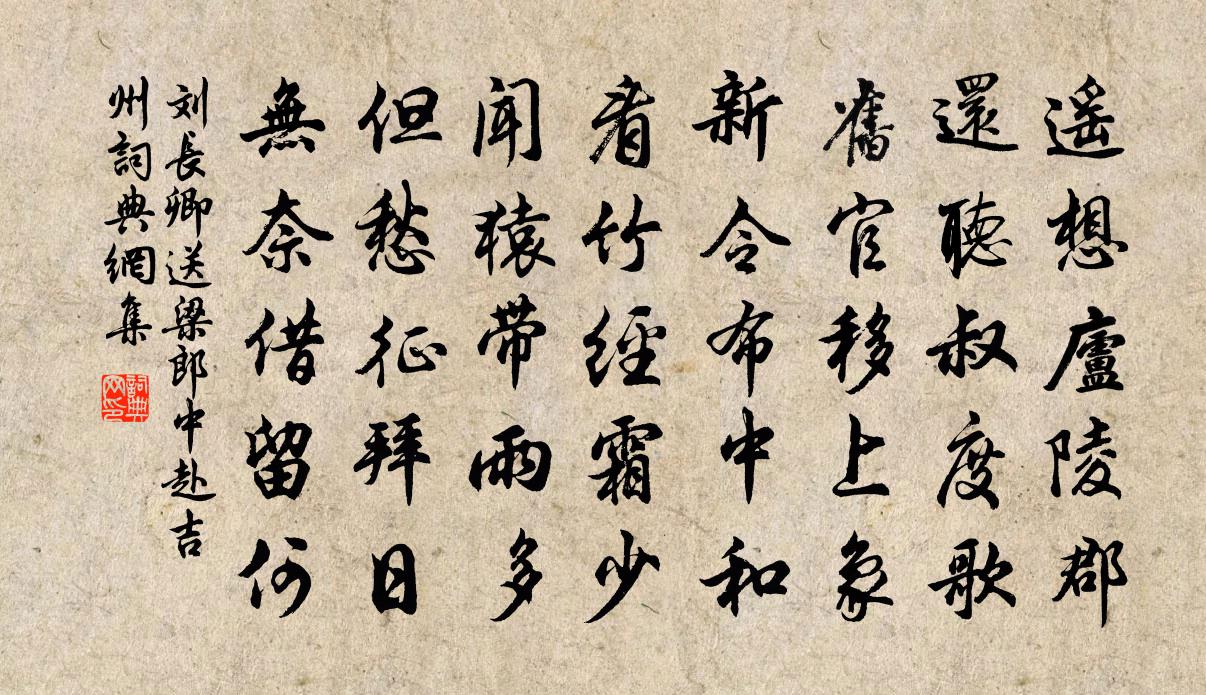 遥想廬陵郡
還聽叔度歌
舊官移上象
新令布中和
看竹經霜少
聞猿带雨多
但愁征拜日
無奈借留何
刘長卿送梁郎中赴吉
州詞典網集
詞典
网印